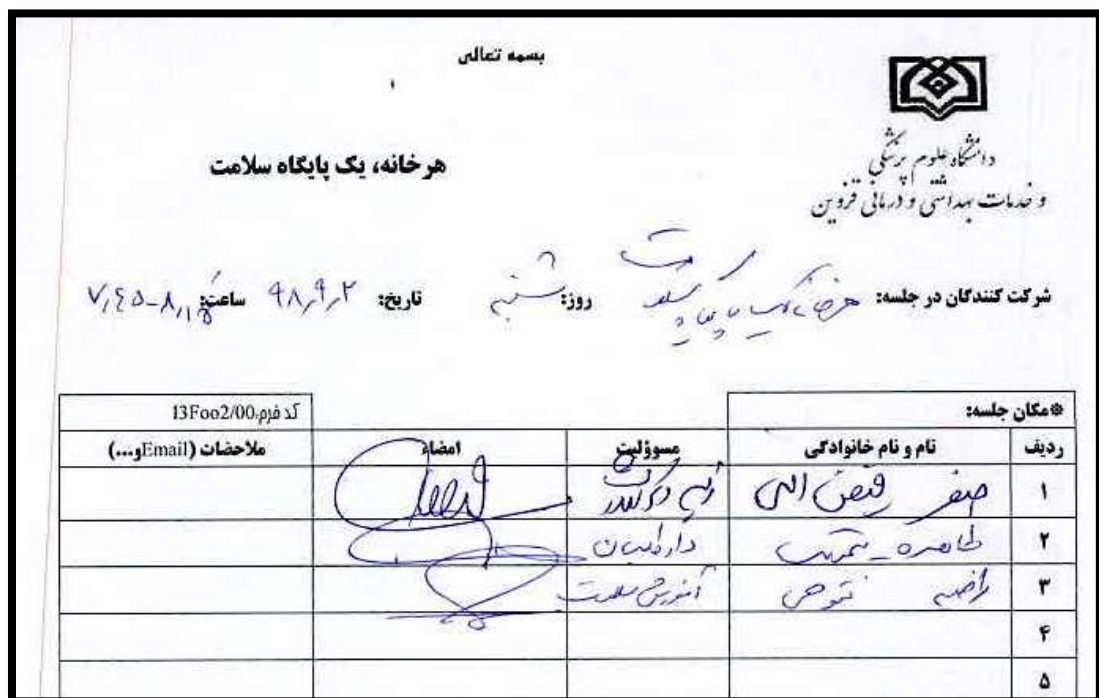 بسمه تعالی
دانشگاه علوم پزشکی
و خدمات بهداشتی و درمانی قزوین
هر خانه، یک پایگاه سلامت
شرکت کنندگان در جلسه: هر خانه یک پایگاه سلامت روز: شنبه تاریخ: ۹۸,۹,۲ ساعت: ۷,۴۵-۸,۱۵
*مکان جلسه: کد فرم:13Foo2/00
ردیف نام و نام خانوادگی مسوؤلیت امضاء ملاحضات (Emailو...)
۱ صفر فیض الهی
۲ طاهره
۳ راضیه فتوحی آموزش سلامت
۴
۵